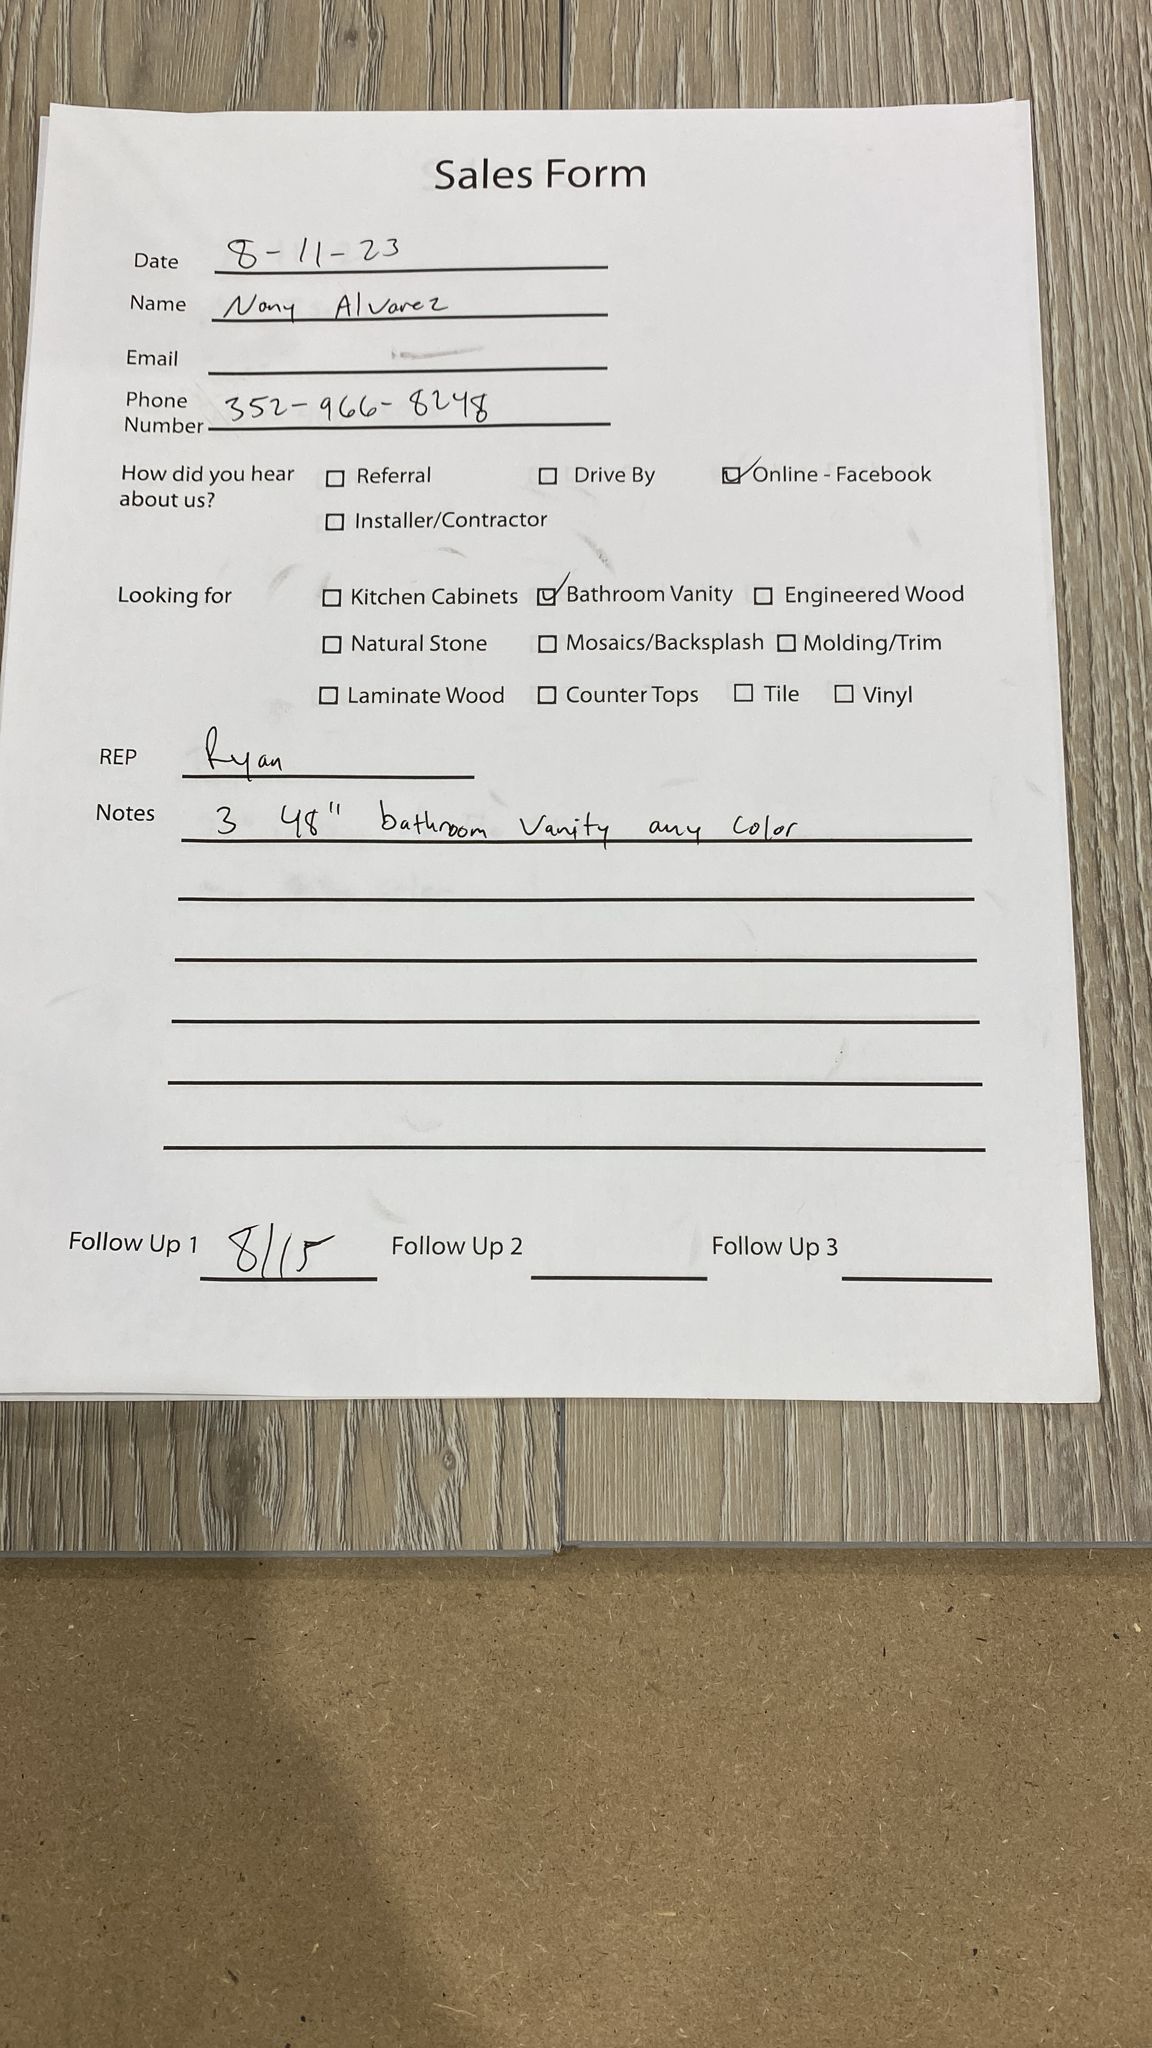 Sales Form
Date 8-11-23
Name Nony Alvarez
Email
Phone
Number 352-966-8248
How did you hear
about us?
Referral Drive By Online - Facebook
Installer/Contractor
Looking for Kitchen Cabinets Bathroom Vanity Engineered Wood
Natural Stone Mosaics/Backsplash Molding/Trim
Laminate Wood Counter Tops Tile Vinyl
REP Ryan
Notes 3 48" bathroom Vanity any color
Follow Up 1 8/15 Follow Up 2 Follow Up 3